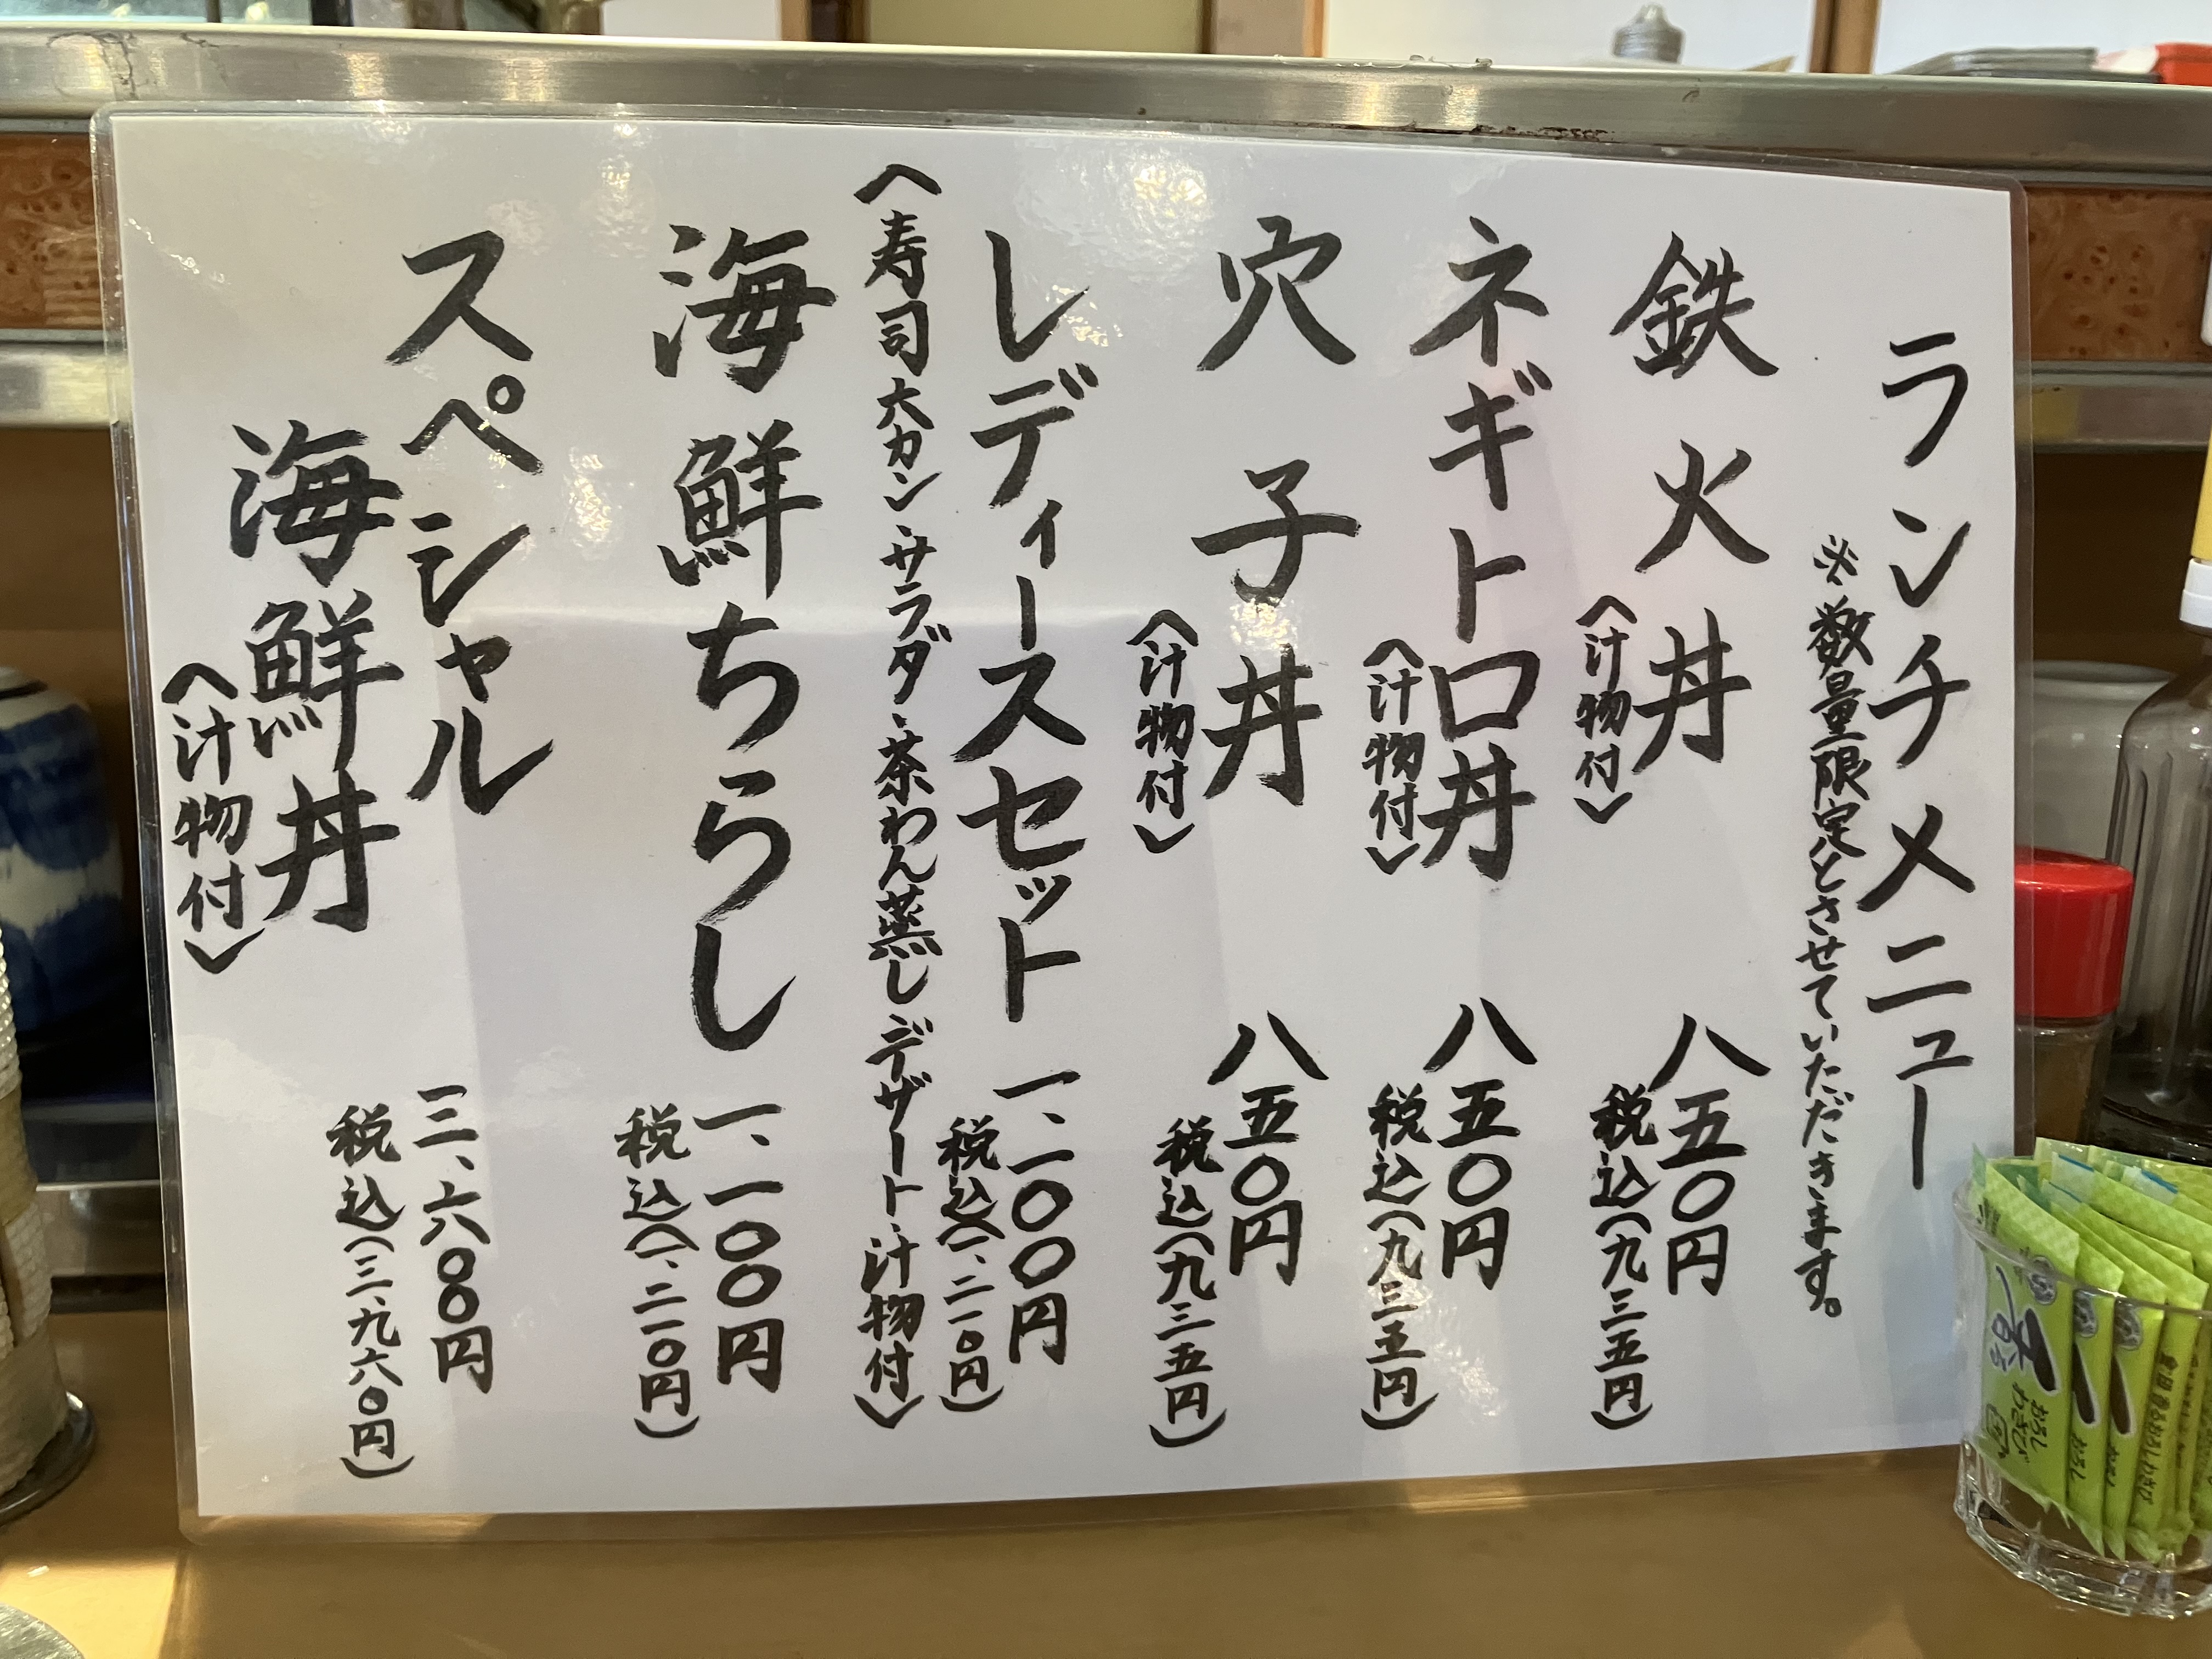 ランチメニュー
※数量限定とさせていただきます。
鉄火丼
〈汁物付〉
八五〇円
税込(九三五円)
ネギトロ丼
〈汁物付〉
八五〇円
税込(九三五円)
穴子丼
〈汁物付〉
八五〇円
税込(九三五円)
レディースセット
一、一〇〇円
税込(一、二一〇円)
〈寿司六カン、サラダ、茶わん蒸し デザート、汁物付〉
海鮮ちらし
一、一〇〇円
税込(一、二一〇円)
スペシャル
海鮮丼
〈汁物付〉
三、六〇〇円
税込(三、九六〇円)
おろし
わさび
おろし